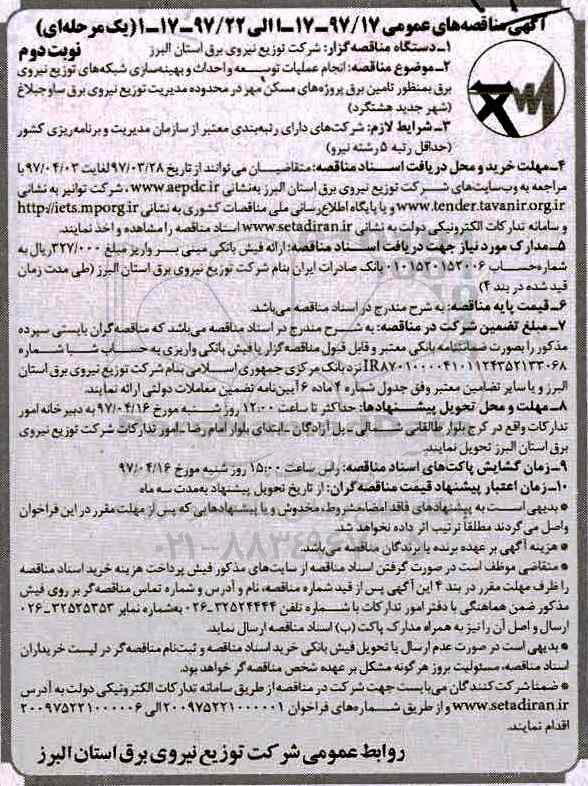 آگهی مناقصه‌های عمومی ۹۷/۱۷-۱۷-۱ الی ۹۷/۲۲-۱۷-۱ (یک مرحله‌ای)
نوبت دوم
۱-دستگاه مناقصه‌گزار: شرکت توزیع نیروی برق استان البرز
۲-موضوع مناقصه: انجام عملیات توسعه و احداث و بهینه‌سازی شبکه‌های توزیع نیروی
برق بمنظور تامین برق پروژه‌های مسکن مهر در محدوده مدیریت توزیع نیروی برق ساوجبلاغ
(شهر جدید هشتگرد)
۳-شرایط لازم: شرکت‌های دارای رتبه‌بندی معتبر از سازمان مدیریت و برنامه‌ریزی کشور
(حداقل رتبه ۵ رشته نیرو)
۴-مهلت خرید و محل دریافت اسناد مناقصه: متقاضیان می‌توانند از تاریخ ۹۷/۰۳/۲۸ لغایت ۹۷/۰۴/۰۳ با
مراجعه به وب‌سایت‌های شرکت توزیع نیروی برق استان البرز به‌نشانی www.aepdc.ir، شرکت توانیر به نشانی
www.tender.tavanir.org.ir و یا پایگاه اطلاع‌رسانی ملی مناقصات کشوری به نشانی http://iets.mporg.ir
و سامانه تدارکات الکترونیکی دولت به نشانی www.setadiran.ir اسناد مناقصه را مشاهده و اخذ نمایند.
۵-مدارک مورد نیاز جهت دریافت اسناد مناقصه: ارائه فیش بانکی مبنی بر واریز مبلغ ۳۲۷/۰۰۰ ریال به
شماره‌حساب ۰۱۰۱۵۲۰۱۵۲۰۰۶ بانک صادرات ایران بنام شرکت توزیع نیروی برق استان البرز (طی مدت زمان
قید شده در بند ۴)
۶-قیمت پایه مناقصه: به شرح مندرج در اسناد مناقصه می‌باشد.
۷-مبلغ تضمین شرکت در مناقصه: به شرح مندرج در اسناد مناقصه می‌باشد که مناقصه‌گران بایستی سپرده
مذکور را بصورت ضمانتنامه بانکی معتبر و قابل قبول مناقصه‌گزار یا فیش بانکی واریزی به حساب شبا شماره
IR۸۷۰۱۰۰۰۰۴۱۰۱۱۲۴۳۵۲۱۳۳۰۶۸ نزد بانک مرکزی جمهوری اسلامی بنام شرکت توزیع نیروی برق استان
البرز و یا سایر تضامین معتبر وفق جدول شماره ۴ ماده ۶ آیین‌نامه تضمین معاملات دولتی ارائه نمایند.
۸-مهلت و محل تحویل پیشنهادها: حداکثر تا ساعت ۱۲:۰۰ روز شنبه مورخ ۹۷/۰۴/۱۶ به دبیرخانه امور
تدارکات واقع در کرج بلوار طالقانی شمالی -پل آزادگان -ابتدای بلوار امام رضا -امور تدارکات شرکت توزیع نیروی
برق استان البرز تحویل نمایند.
۹-زمان گشایش پاکت‌های اسناد مناقصه: راس ساعت ۱۵:۰۰ روز شنبه مورخ ۹۷/۰۴/۱۶
۱۰-زمان اعتبار پیشنهاد قیمت مناقصه‌گران: از تاریخ تحویل پیشنهاد به‌مدت سه ماه
* بدیهی است به پیشنهادهای فاقد امضا، مشروط، مخدوش و یا پیشنهادهایی که پس از مهلت مقرر در این فراخوان
واصل می‌گردند مطلقا ترتیب اثر داده نخواهد شد.
* هزینه آگهی بر عهده برنده یا برندگان مناقصه می‌باشد.
* متقاضی موظف است در صورت گرفتن اسناد مناقصه از سایت‌های مذکور فیش پرداخت هزینه خرید اسناد مناقصه
را ظرف مهلت مقرر در بند ۴ این آگهی پس از قید شماره مناقصه، نام و آدرس و شماره تماس مناقصه‌گر بر روی فیش
مذکور ضمن هماهنگی با دفتر امور تدارکات با شماره تلفن ۳۲۵۲۴۴۴۴-۰۲۶ به‌شماره نمابر ۳۲۵۲۵۳۵۳-۰۲۶
ارسال و اصل آن را نیز به همراه مدارک پاکت (ب) اسناد مناقصه ارسال نماید.
* بدیهی است در صورت عدم ارسال یا تحویل فیش بانکی خرید اسناد مناقصه و ثبت‌نام مناقصه‌گر در لیست خریداران
اسناد مناقصه، مسئولیت بروز هرگونه مشکل بر عهده شخص مناقصه‌گر خواهد بود.
* ضمنا شرکت‌کنندگان می‌بایست جهت شرکت در مناقصه از طریق سامانه تدارکات الکترونیکی دولت به آدرس
www.setadiran.ir و از طریق شماره‌های فراخوان ۲۰۰۹۷۵۲۲۱۰۰۰۰۰۱ الی ۲۰۰۹۷۵۲۲۱۰۰۰۰۰۶
اقدام نمایند.
روابط عمومی شرکت توزیع نیروی برق استان البرز